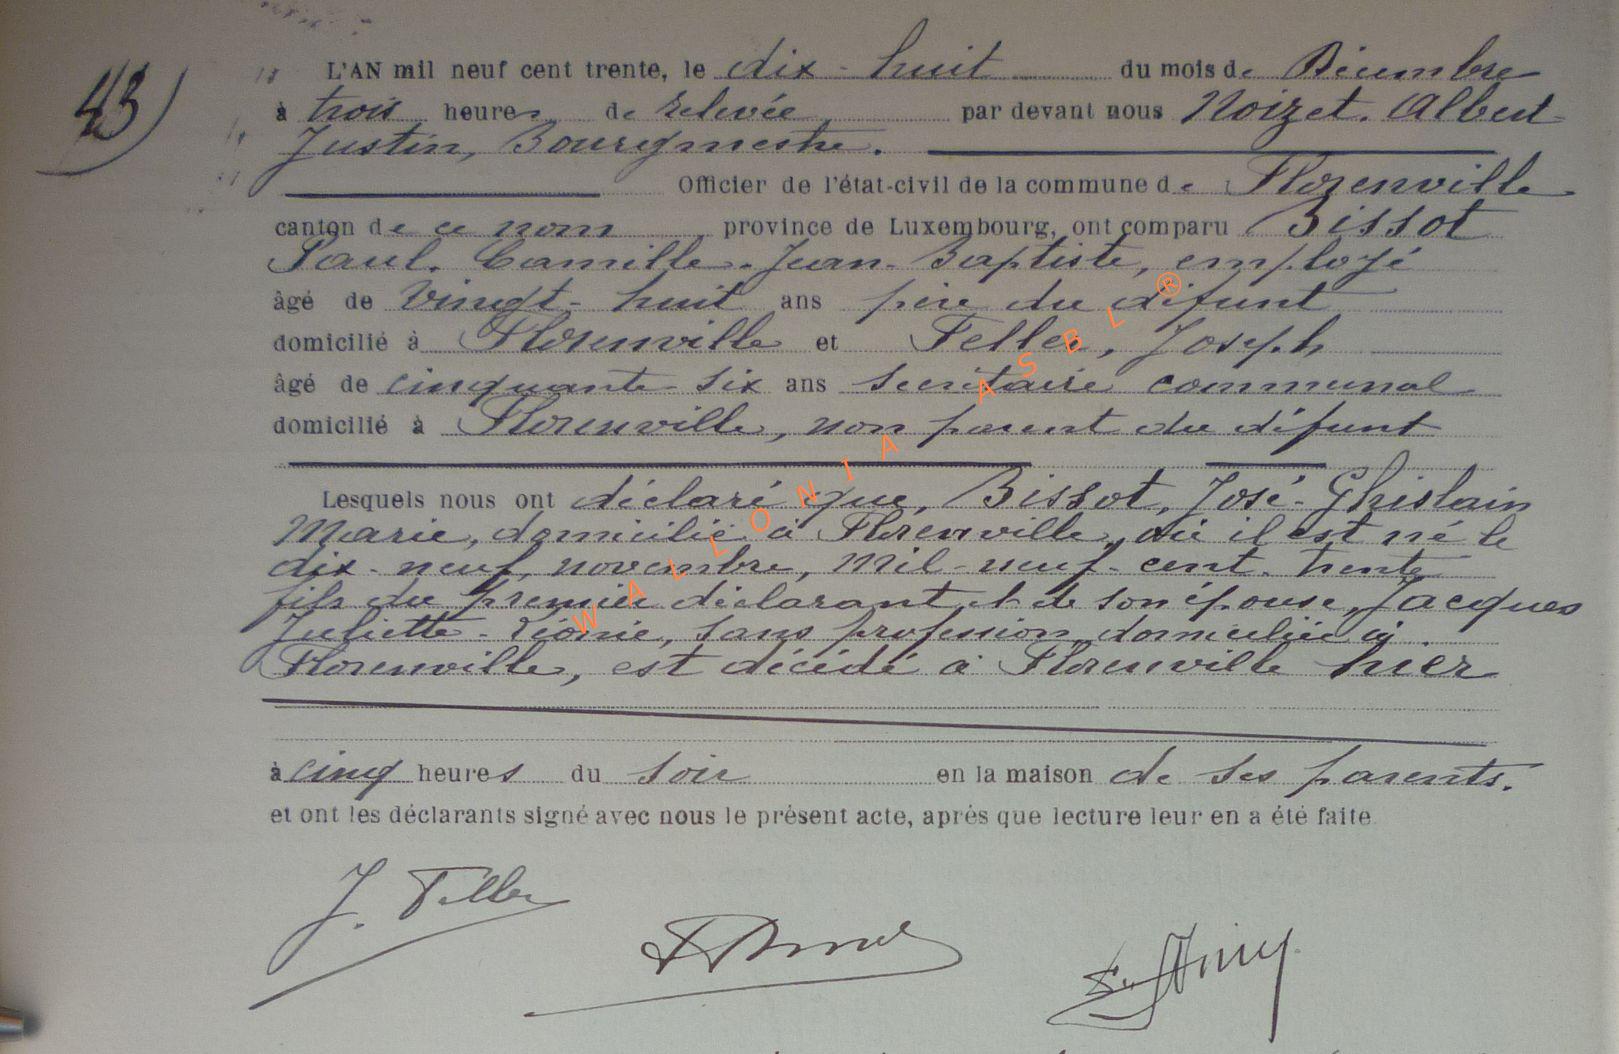 43)
L'AN mil neuf cent trente, le dix-huit du mois de Décembre
à trois heures de relevée par devant nous Noizet. Albert
Justin, Bourgmestre.
Officier de l'état-civil de la commune de Florenville
canton de ce nom, province de Luxembourg, ont comparu Bissot
Paul. Camille. Jean-Baptiste, employé
âgé de vingt-huit ans père du défunt
domicilié à Florenville et Feller, Joseph
âgé de cinquante six ans secrétaire communal
domicilié à Florenville, non parent du défunt
Lesquels nous ont déclaré que, Bissot, José-Ghislain
Marie, domicilié à Florenville, où il est né le
dix-neuf novembre, mil-neuf-cent-trente
fils du premier déclarant et de son épouse, Jacques
Juliette-Léonie, sans profession domiciliée à
Florenville, est décédé à Florenville hier
à cinq heures du soir en la maison de ses parents.
et ont les déclarants signé avec nous le présent acte, après que lecture leur en a été faite
J. Feller
WALLONIA ASBL ®